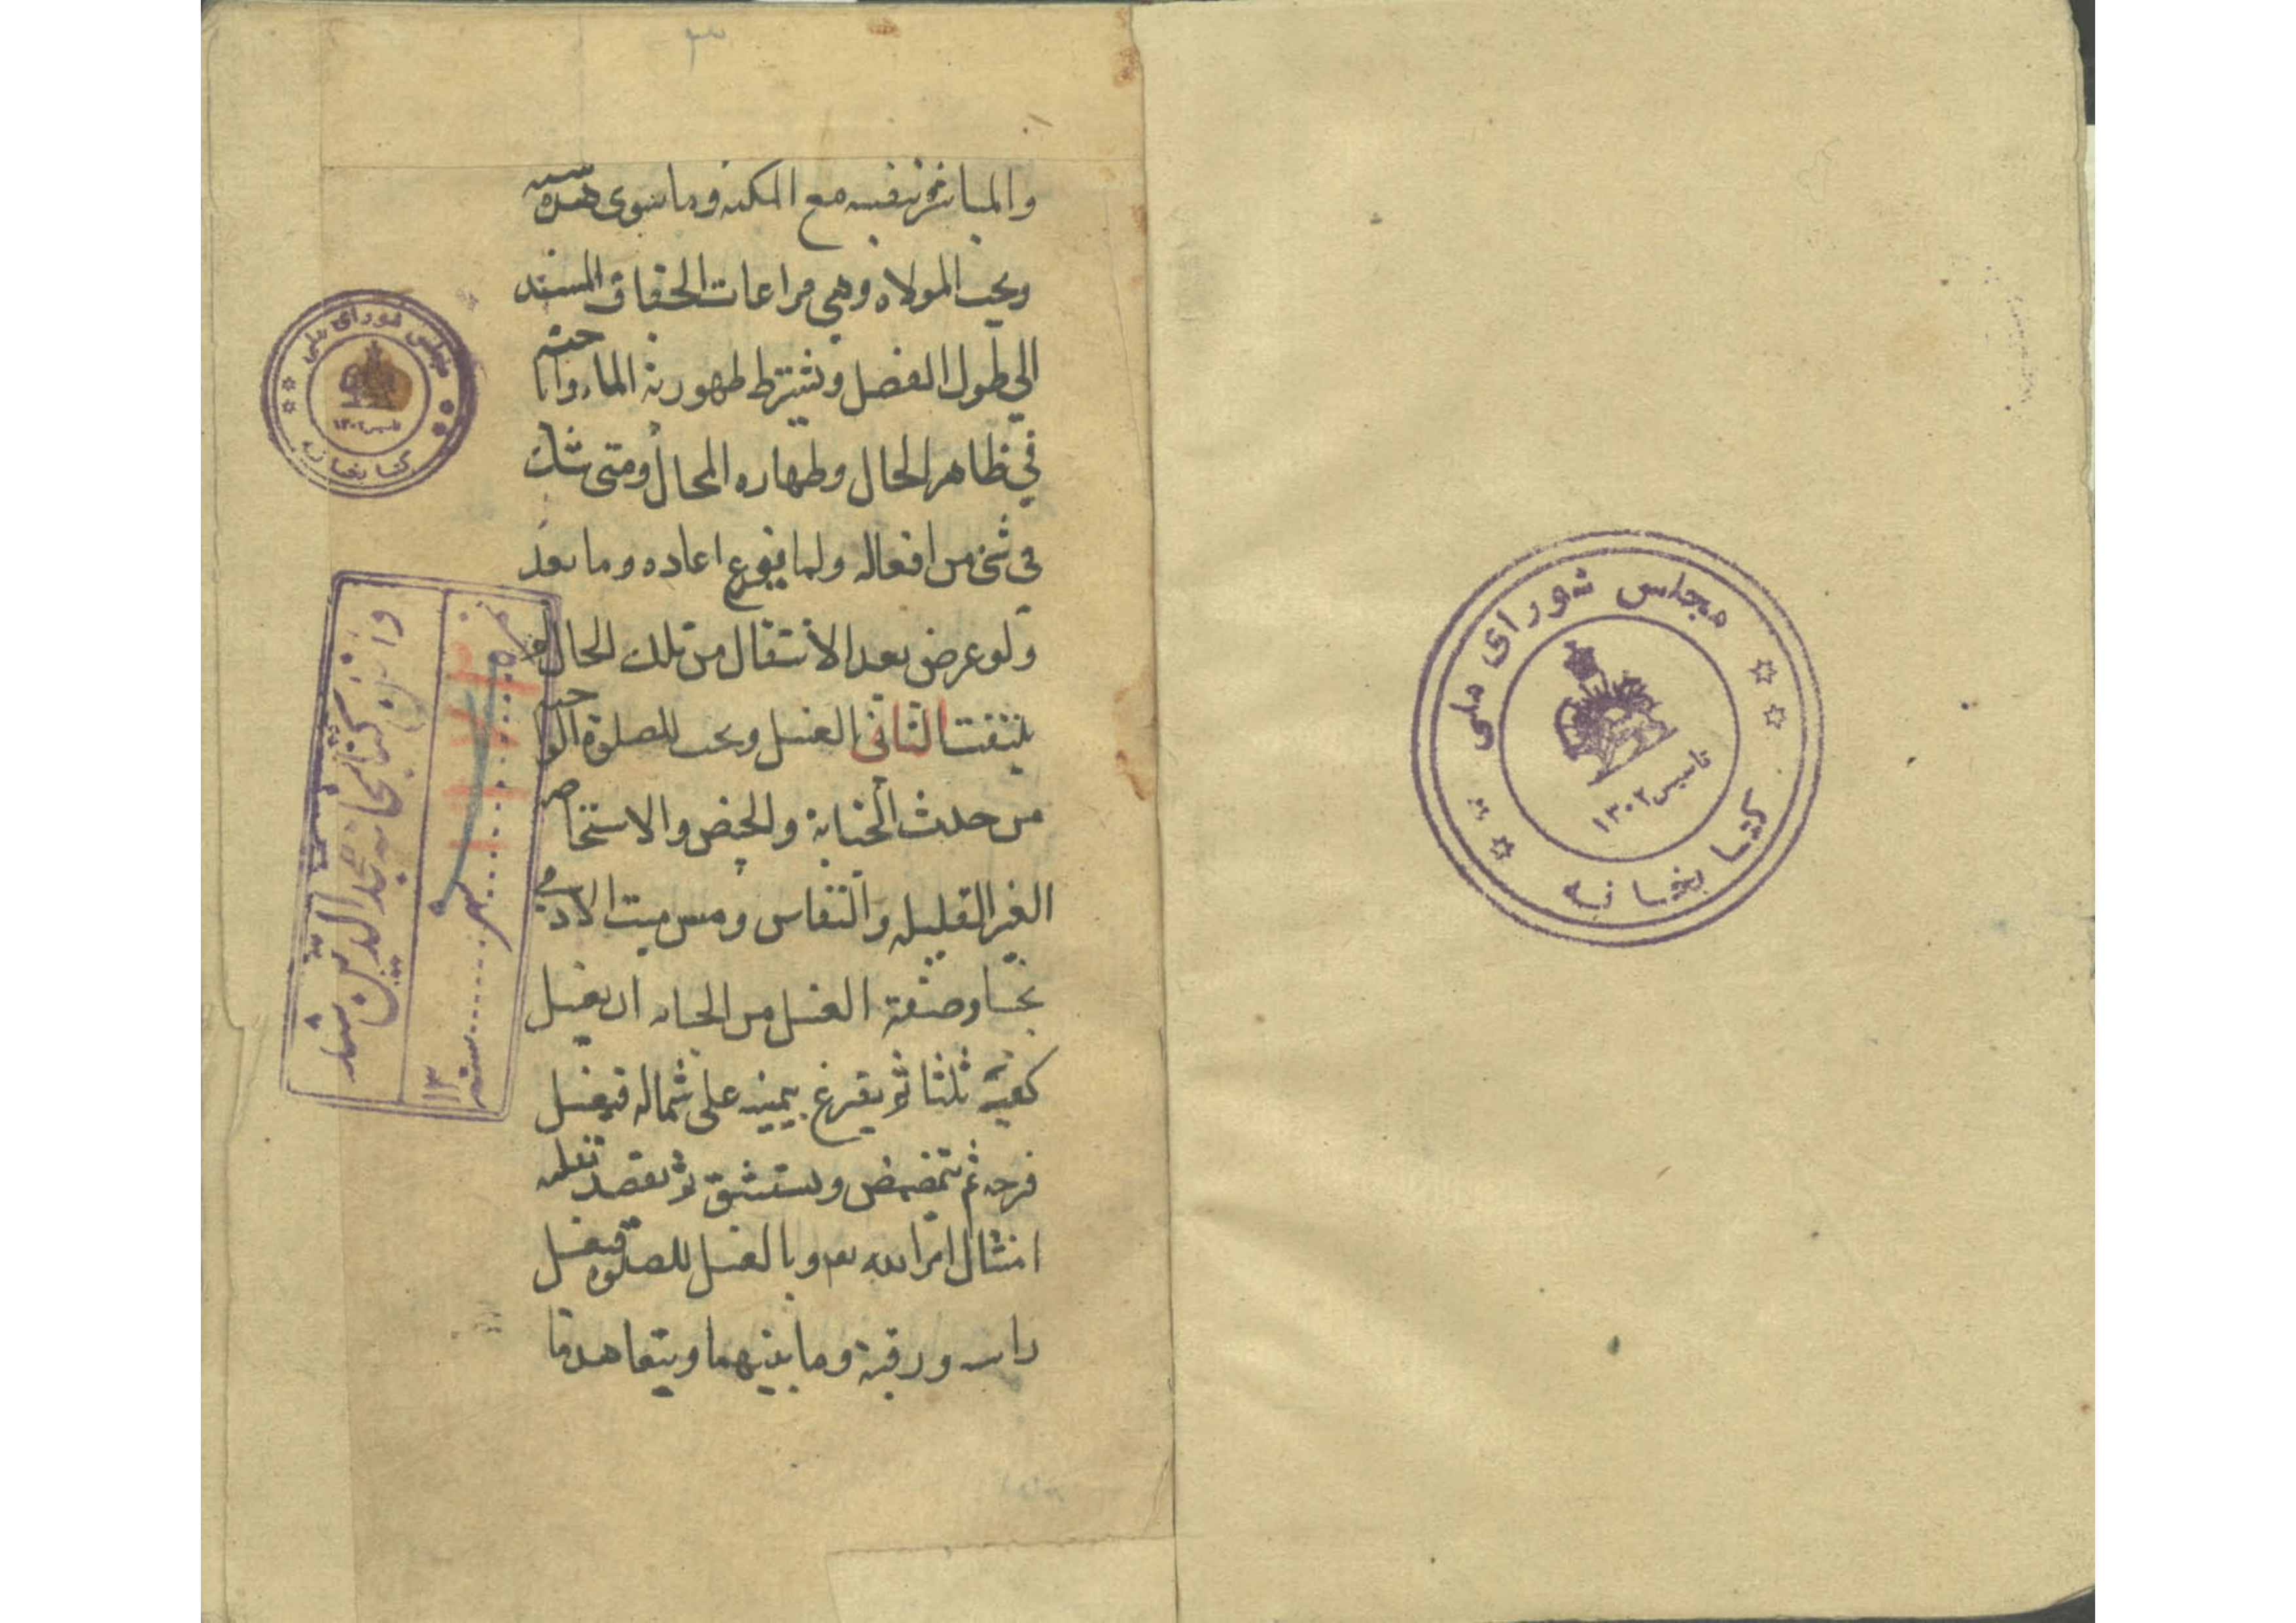 مجلس شورای ملی
کتابخانه
تاسیس ۱۳۰۲
والمباشرة بنفسه مع المكنه وما سوى هذه سنه
ويجب الموالاه وهي مراعات الجفاف المستند
الى طول الفصل ويشترط طهورية الماء واباحته
في ظاهر الحال وطهاره المحال ومتى شك
في شئ من افعاله ولما يفرغ اعاده وما بعد
ولو عرض بعد الانتقال من تلك الحال لم
يلتفت الثاني الغسل ويجب للصلوة الواجبه
من حدث الجنابة والحيض والاستحاضه
الغير القليله والنفاس ومس ميت الادمي
نجسا وصفة الغسل من الجنابه ان يغسل
كفيه ثلثا ثم يفرغ بيمينه على شماله فيغسل
فرجه ثم يتمضمض ويستنشق ثم يقصد بقلبه
امتثال امر الله بالغسل للصلوة فيغسل
راسه ورقبته وما بينهما ويتعاهد ما
مجلس شورای ملی
تاسیس ۱۳۰۲
کتابخانه
کتابخانه فخرالدین
سنه ۱۳